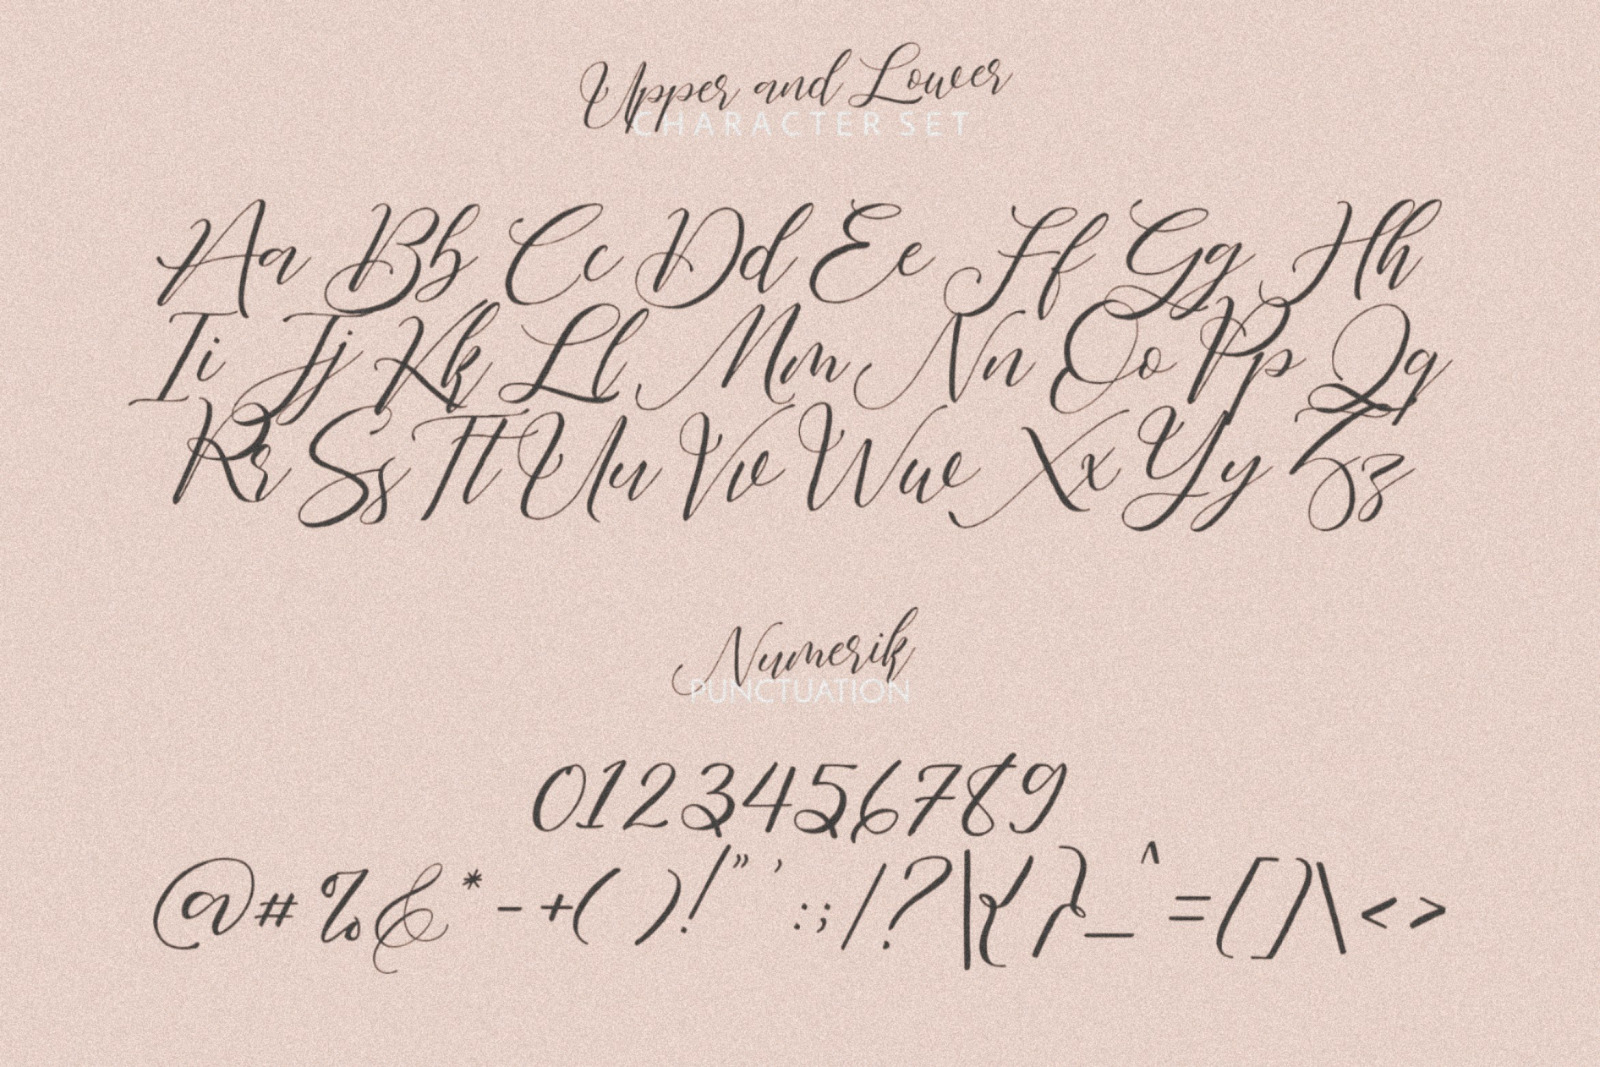 Upper and Lower
CHARACTER SET
Aa Bb Cc Dd Ee Ff Gg Hh
Ii Jj Kk Ll Mm Nn Oo Pp Qq
Rr Ss Tt Uu Vv Ww Xx Yy Zz
Numerik
PUNCTUATION
0123456789
@#%&*-+()!"':;/?|{}_^=[]\<>